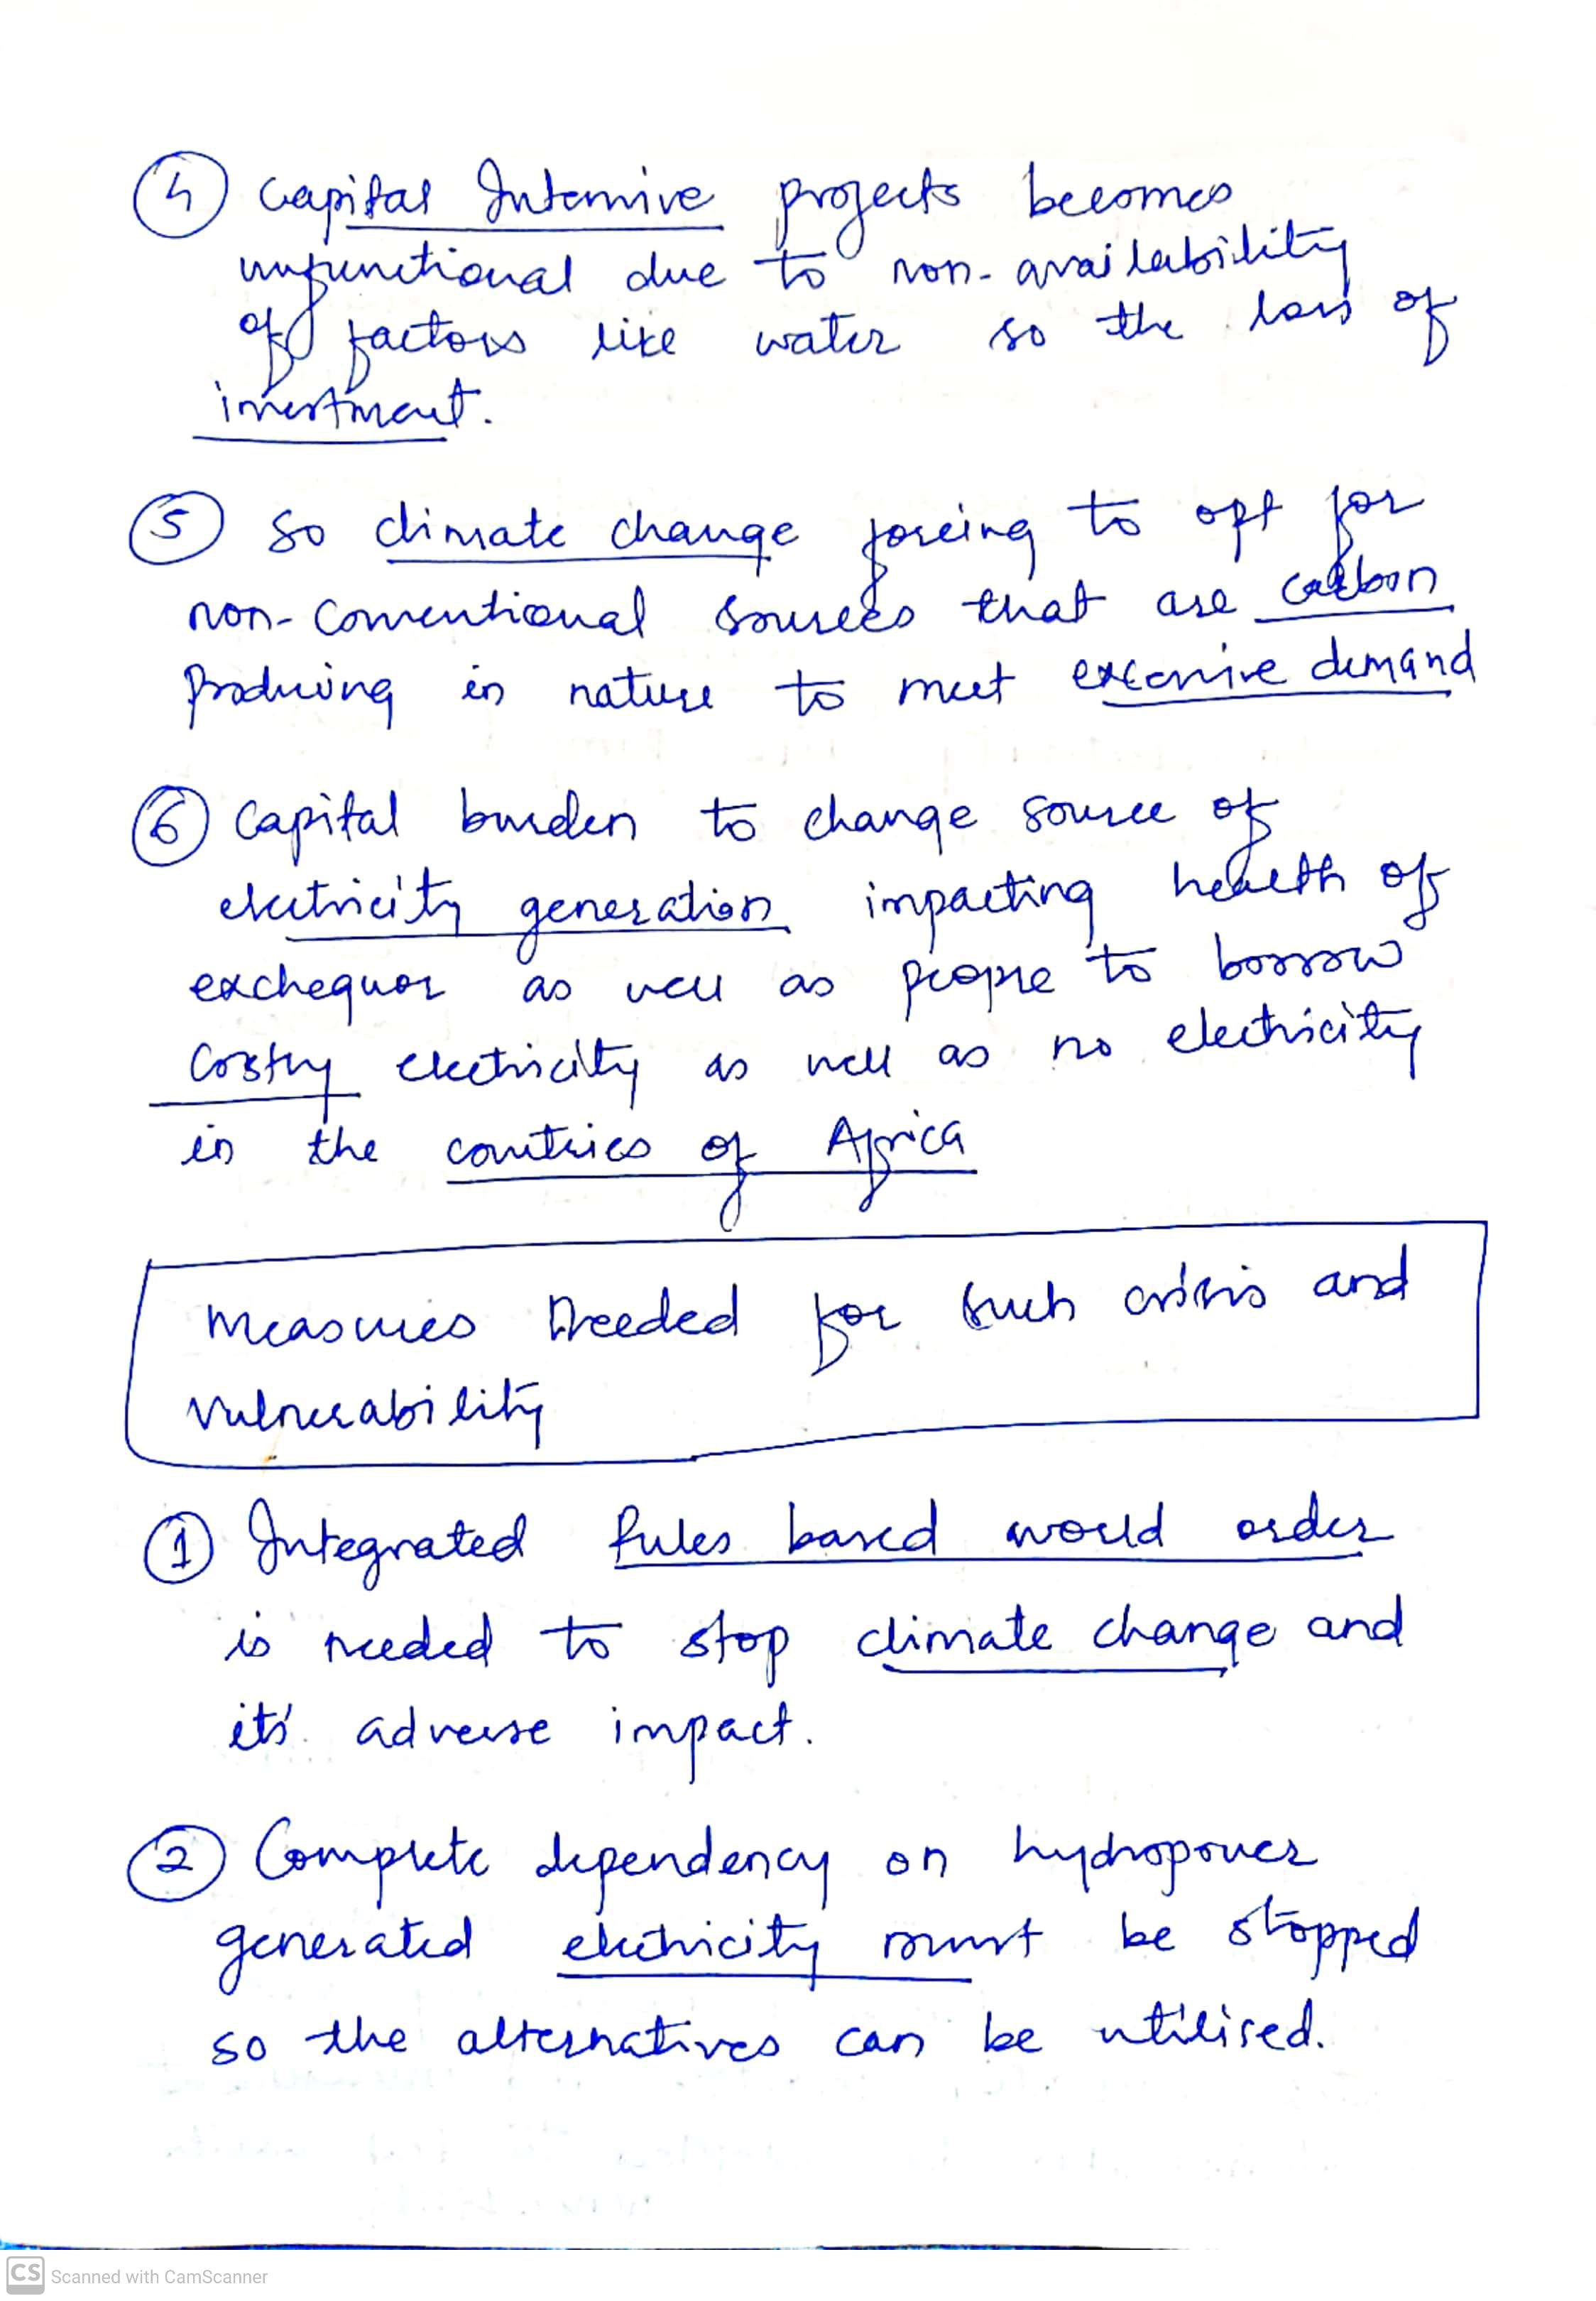 ④ Capital Intensive projects becomes
unfunctional due to non-availability
of factors like water so the loss of
investment.
⑤ So climate change forcing to opt for
non-conventional sources that are carbon
producing in nature to meet excessive demand
⑥ Capital burden to change source of
electricity generation impacting health of
exchequer as well as people to borrow
Costly electricity as well as no electricity
in the countries of Africa
Measures Needed for such crisis and
vulnerability
① Integrated Rules based world order
is needed to stop climate change and
its' adverse impact.
② Complete dependency on hydropower
generated electricity must be stopped
so the alternatives can be utilised.
CS Scanned with CamScanner